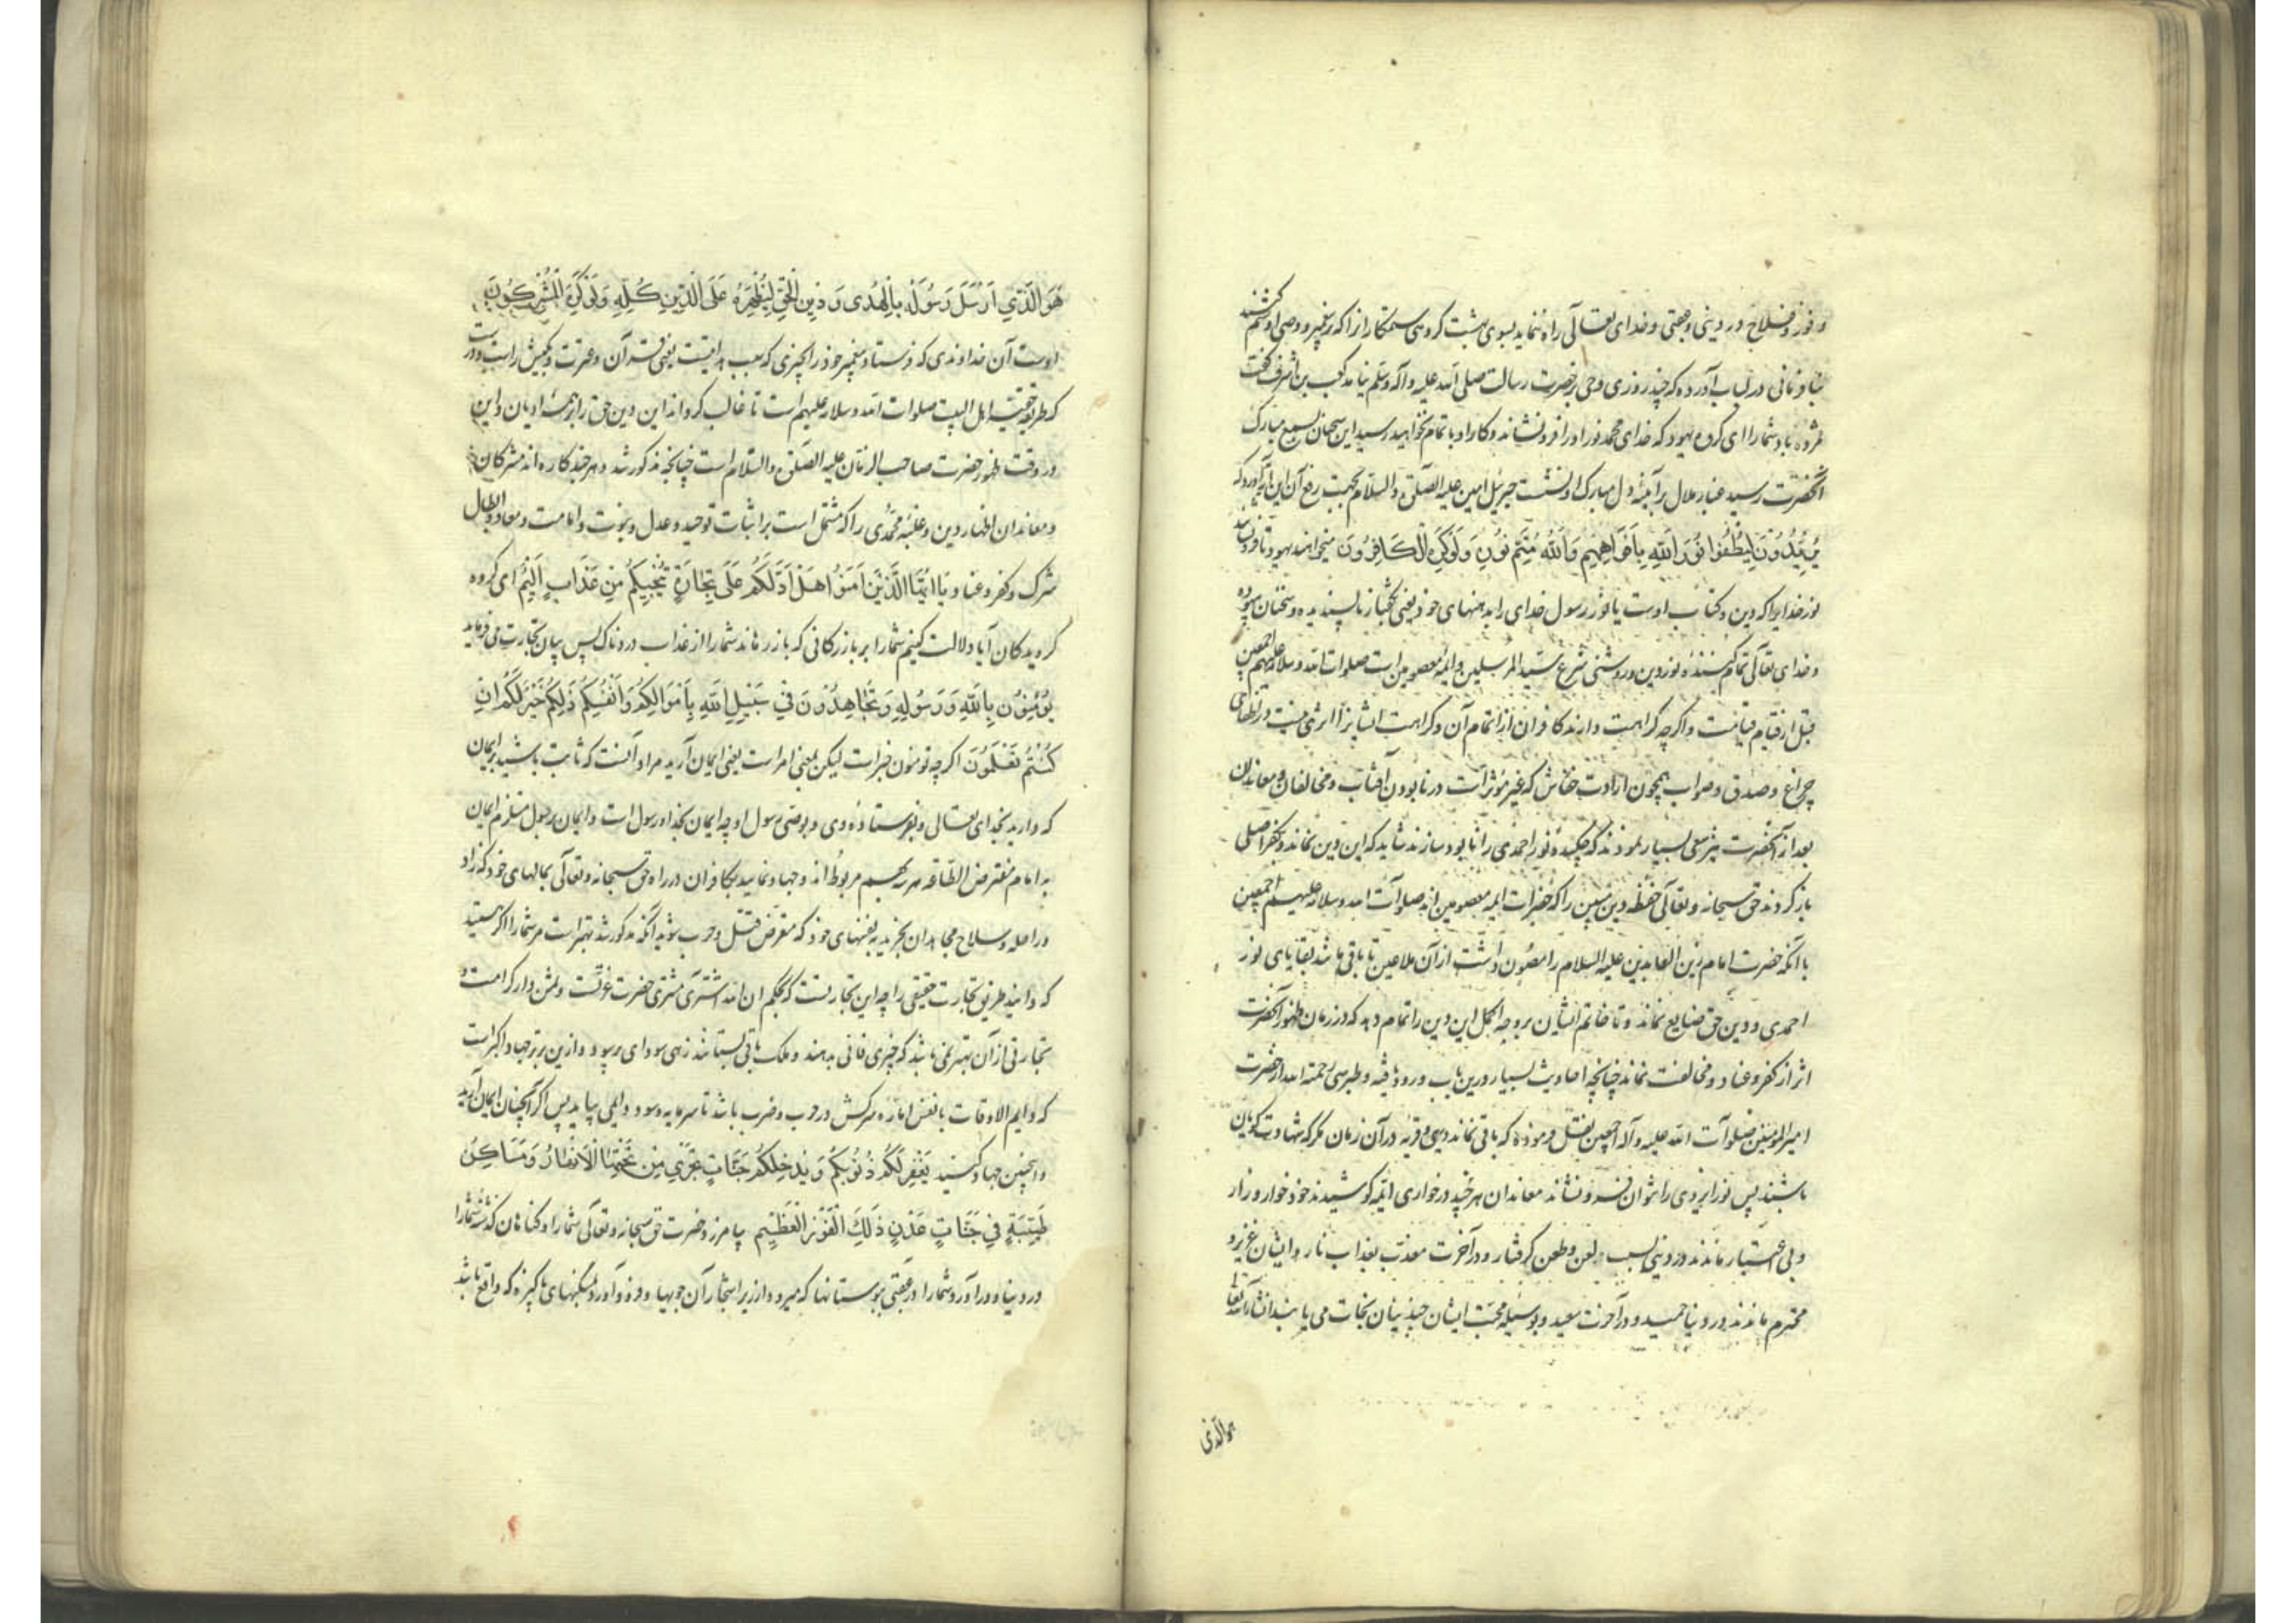 و فوز و فلاح در دینی و عقبی و خدای تعالی راه ننماید بسوی بهشت گروهی ستمکار انرا که بر پیغمبر و وصی او ستم کنند
در لباب آورده که چند روزی وحی بر حضرت رسالت صلی الله علیه و آله و سلم نیامد کعب بن اشرف گفت
مژده باد شما را ای گروه یهود که خدای محمد نور او را فرو نشاند و کار او باتمام نخواهد رسید این سخنان بسمع مبارک
آنحضرت رسید غبار ملال بر آینه دل مبارک او نشست جبرئیل امین علیه الصلوة والسلام بجهت رفع آن این آیه آورد که
يُرِيدُونَ لِيُطْفِؤُا نُورَ اللهِ بِأَفْوَاهِهِمْ وَاللهُ مُتِمُّ نُورِهِ وَلَوْ كَرِهَ الْكَافِرُونَ میخواهند یهود تا فرو نشانند
نور خدایرا که دین و کتاب اوست یا نور رسول خدای را بدهنهای خود یعنی بگفتار ناپسندیده و سخنان بیهوده
و خدای تعالی تمام کننده نور دین و روشنی شرع سید المرسلین و ایمه معصومین است صلوات الله و سلامه علیهم اجمعین
قبل از قیام قیامت و اگرچه کراهیت دارند کافران از اتمام آن و کراهت ایشانرا اثری نیست در اطفای
چراغ و صدق و صواب همچون ارادت خفاش که غیر مؤثر است در نابودن آفتاب و مخالفان و معاندان
بعد از آنحضرت نیز سعی بسیار نمودند که چکیده نور احمدی را نابود سازند شاید که این دین نماند و بکفر اصلی
باز گردند حق سبحانه و تعالی حفظه دین مبین را که حضرات ایمه معصومین اند صلوات الله و سلامه علیهم اجمعین
با آنکه حضرت امام زین العابدین علیه السلام را مصون داشت از آن ملاعین تا باقی باشد بقایای نور
احمدی و دین حق ضایع نماند و تا خاتم ایشان بروجه اکمل این دین را تمام دهد که در زمان ظهور آنحضرت
اثر از کفر و عناد و مخالفت نماند چنانچه احادیث بسیار درین باب ورود یافته و طبرسی رحمته الله از حضرت
امیرالمؤمنین صلوات الله علیه و آله اجمعین نقل فرموده که باقی نماند دیهی و قریه در آن زمان مگر که شهادت گویان
باشند پس نور ایزدی را نتوان فرو نشاند معاندان هر چند در خواری ایمه کوشیدند خود خوار و زار
و بی اعتبار ماندند در دینی بسبب لعن و طعن گرفتار و در آخرت معذب بعذاب نار و ایشان عزیز و
محترم ماندند در دنیا حمید و در آخرت سعید و بوسیله محبت ایشان چندینان نجات می یابند انشاء الله تعالی
هوالذی
هُوَ الَّذِي أَرْسَلَ رَسُولَهُ بِالْهُدَى وَدِينِ الْحَقِّ لِيُظْهِرَهُ عَلَى الدِّينِ كُلِّهِ وَلَوْ كَرِهَ الْمُشْرِكُونَ
اوست آن خداوندی که فرستاد پیغمبر خود را بچیزی که سبب هدایتست یعنی قرآن و عترت و بکیش راست و درست
که طریقه حقیت اهل البیت صلوات الله و سلامه علیهم است تا غالب گرداند این دین حق را بر همه ادیان و این
در وقت ظهور حضرت صاحب الزمان علیه الصلوة والسلام است چنانچه مذکور شد و هر چند کاره اند مشرکان
و معاندان اظهار دین و غلبه محمدی را که مشتمل است بر اثبات توحید و عدل و نبوت و امامت و معاد و ابطال
شرک و کفر و عناد يَا أَيُّهَا الَّذِينَ آمَنُوا هَلْ أَدُلُّكُمْ عَلَى تِجَارَةٍ تُنْجِيكُمْ مِنْ عَذَابٍ أَلِيمٍ ای گروه
گرویدگان آیا دلالت کنیم شما را بر بازرگانی که باز رهاند شما را از عذاب دردناک پس بیان تجارت می فرماید
تُؤْمِنُونَ بِاللهِ وَرَسُولِهِ وَتُجَاهِدُونَ فِي سَبِيلِ اللهِ بِأَمْوَالِكُمْ وَأَنْفُسِكُمْ ذَلِكُمْ خَيْرٌ لَكُمْ إِنْ
كُنْتُمْ تَعْلَمُونَ اگرچه تومنون خبر است لیکن بمعنی امر است یعنی ایمان آرید مراد آنست که ثابت باشید بر ایمان
که دارید بخدای تعالی و بفرستاده وی و بوصی رسول او چه ایمان بخدا و رسول است و ایمان برسول مستلزم ایمان
به امام مفترض الطاعه هر سه بهم مربوط اند و جهاد نمایید با کافران در راه حق سبحانه و تعالی بمالهای خود که زاد
و راحله و سلاح مجاهدان بخرید به نفسهای خود که متعرض قتل و حرب شوید آنکه مذکور شد بهتر است مر شما را اگر هستید
که دانید طریق تجارت حقیقی را چه این تجارتست که بحکم ان الله اشتری مشتری حضرت عزتست و ثمن دار کرامت و
تجارتی از آن بهتر نمی باشد که چیزی فانی بدهند و ملک باقی بستانند زهی سودای پر سود و ازین برتر جهاد اکبر است
که دایم الاوقات با نفس اماره سرکش در حرب و ضرب باشد تا سرمایه و سود دایمی بیابد پس اگر آنچنان ایمان آرید
و اینچنین جهاد کنید يَغْفِرْ لَكُمْ ذُنُوبَكُمْ وَيُدْخِلْكُمْ جَنَّاتٍ تَجْرِي مِنْ تَحْتِهَا الْأَنْهَارُ وَمَسَاكِنَ
طَيِّبَةً فِي جَنَّاتِ عَدْنٍ ذَلِكَ الْفَوْزُ الْعَظِيمُ بیامرزد حضرت حق سبحانه و تعالی شما را و گناهان گذشته شما را
در دنیا و در آورد شما را در عقبی ببوستانها که میرود از زیر اشجار آن جویها و در آورد بمسکنهای پاکیزه که واقع باشد